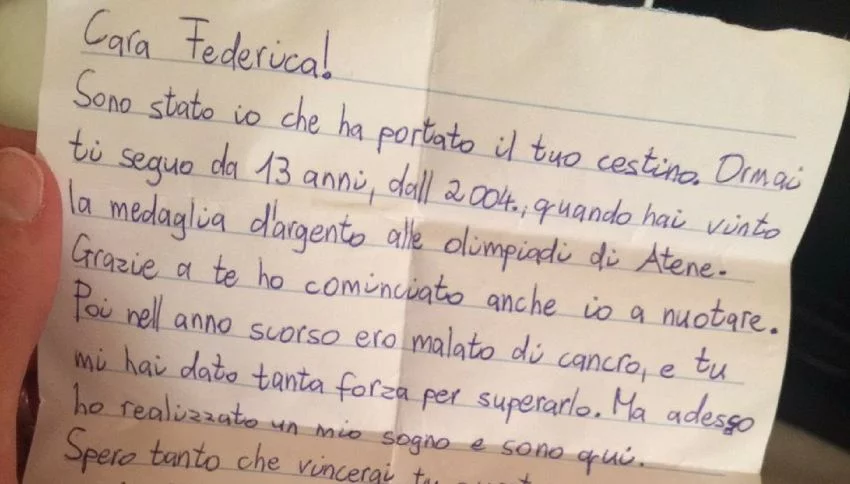 Cara Federica!
Sono stato io che ha portato il tuo cestino. Ormai
ti seguo da 13 anni, dall 2004., quando hai vinto
la medaglia d'argento alle olimpiadi di Atene.
Grazie a te ho cominciato anche io a nuotare.
Poi nell anno scorso ero malato di cancro, e tu
mi hai dato tanta forza per superarlo. Ma adesso
ho realizzato un mio sogno e sono qui.
Spero tanto che vincerai tu